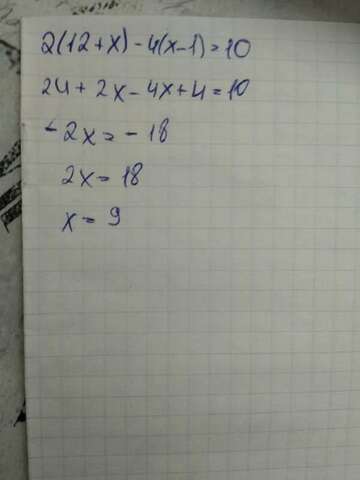 2(12+x)-4(x-1)=10
24+2x-4x+4=10
-2x=-18
2x=18
x=9